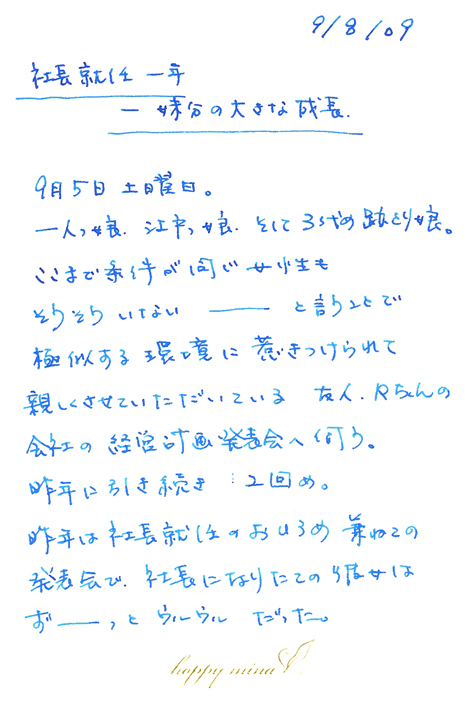 9/8/09
社長就任一年
― 妹分の大きな成長.
9月5日 土曜日。
一人っ娘. 江戸っ娘. そして3代め跡とり娘。
ここまで条件が同じ女性も
そうそういない ―― と言うことで
極似する環境に惹きつけられて
親しくさせていただいている 友人.Rちゃんの
会社の経営計画発表会へ伺う。
昨年に引き続き 2回め。
昨年は社長就任のおひろめ兼ねての
発表会で、社長になりたての彼女は
ず――っとウルウルだった。
happy mina